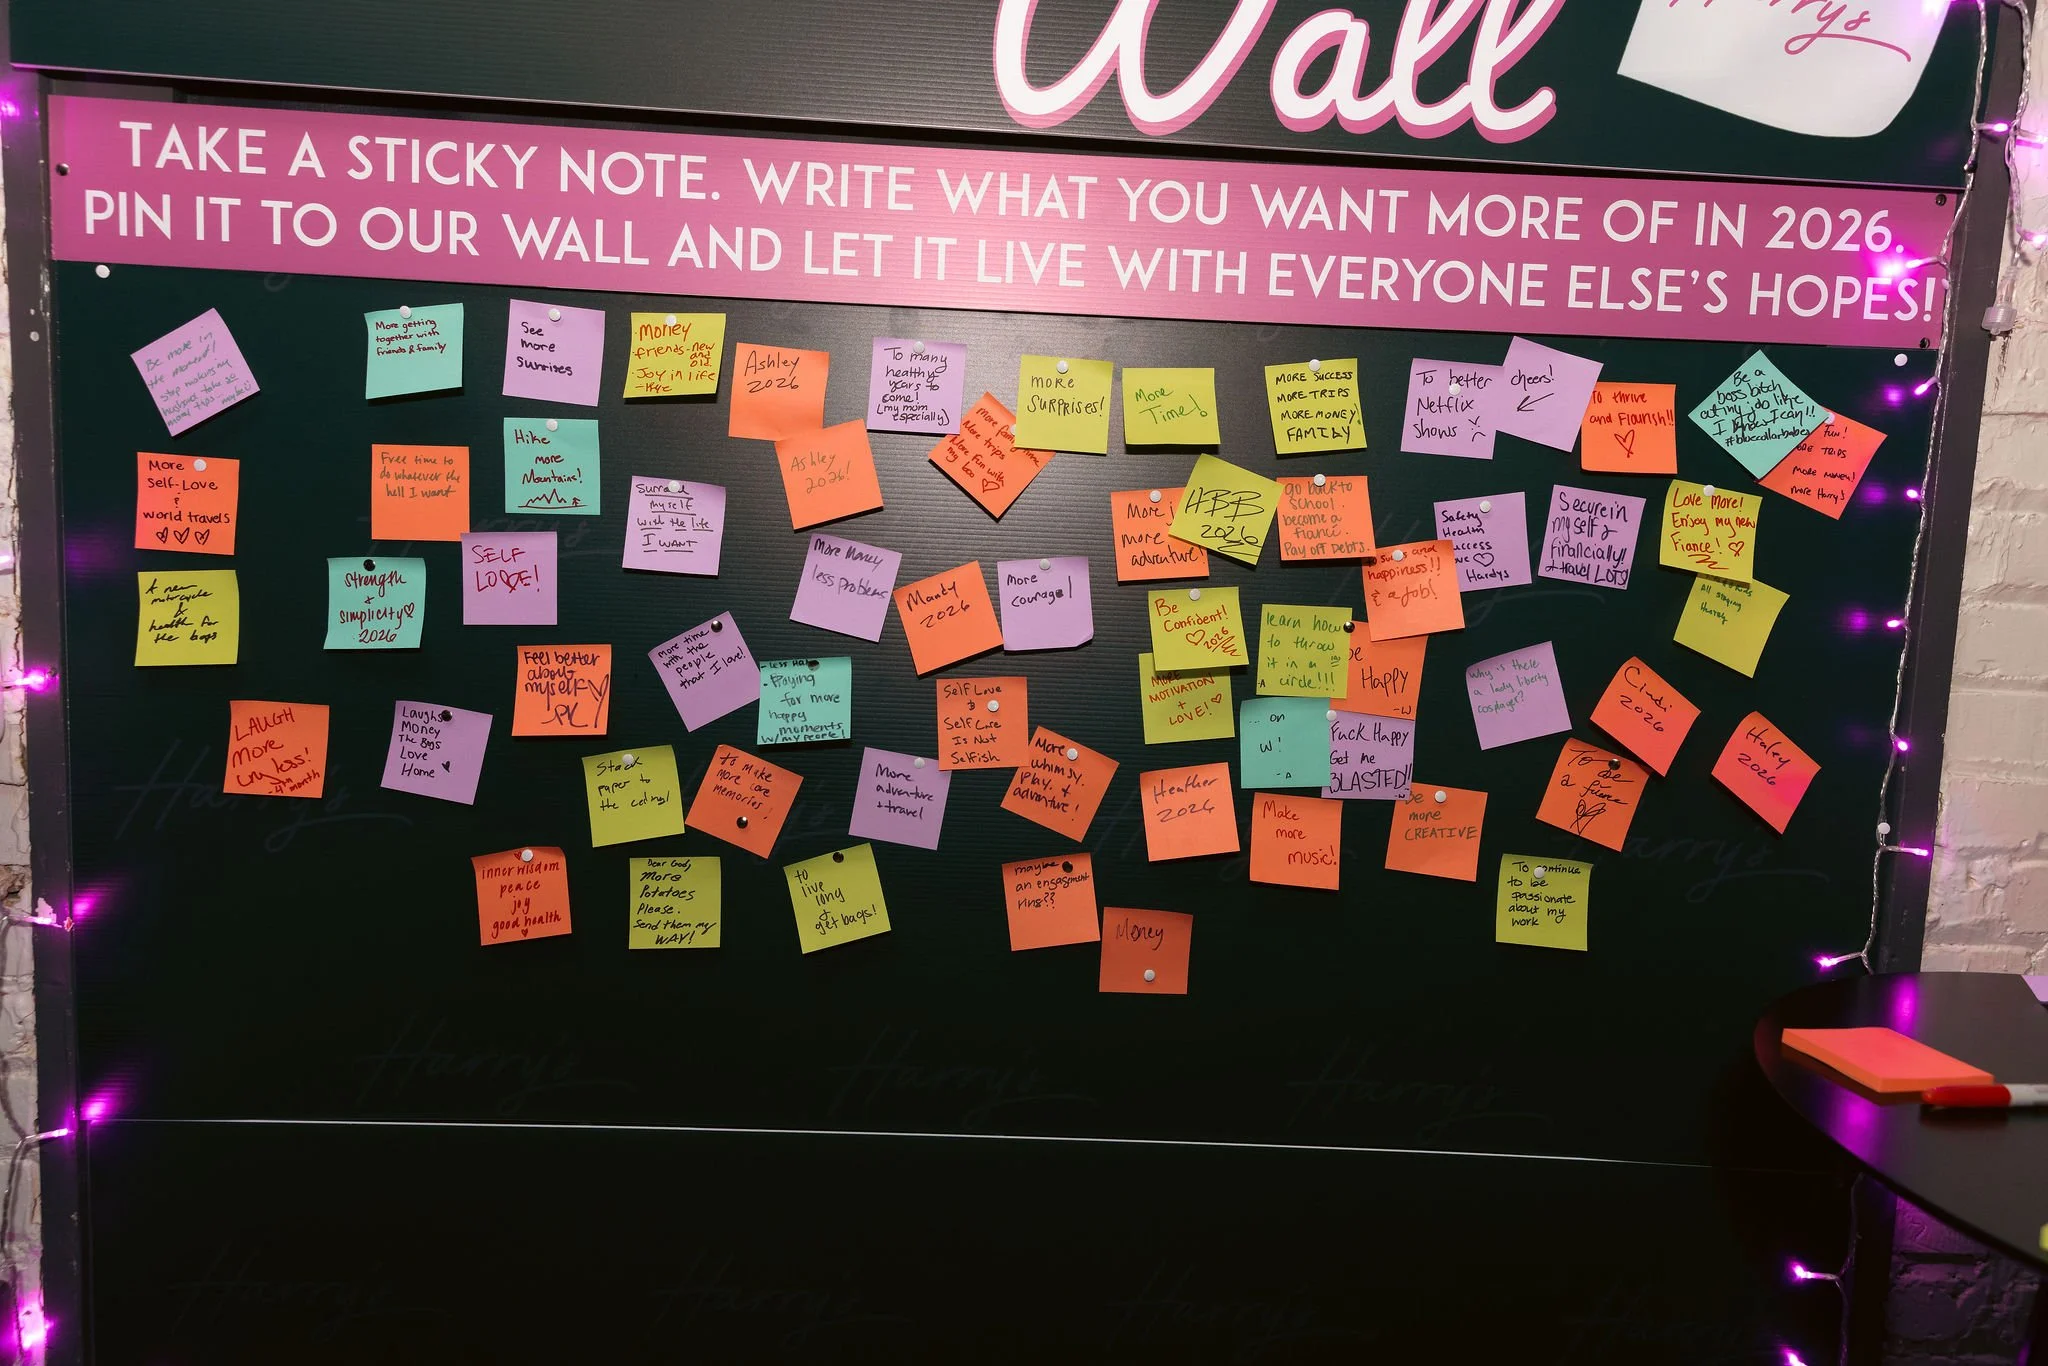 Wall
Harry's
TAKE A STICKY NOTE. WRITE WHAT YOU WANT MORE OF IN 2026.
PIN IT TO OUR WALL AND LET IT LIVE WITH EVERYONE ELSE'S HOPES!
Be more in
the moment!
stop making my
husband take so
many pics - maybe
More getting
together with
friends & family
See
more
sunrises
Money
friends - new
and
old.
Joy in life
Ashley
2026
To many
healthy
years to
come!
(my mom
especially)
More trips
More fun with
my boo
more
SURPRISES!
More
Time!
MORE SUCCESS
MORE TRIPS
MORE MONEY!
FAMILY
To better
Netflix
shows
cheers!
To thrive
and Flourish!!
Be a
boss bitch
at my job like
I know I can!!
#bluecollarbabe
Fun!
TRIPS
MORE MONEY!
more Harry's
More
Self-Love
&
world travels
Free time to
do whatever the
hell I want
Hike
more
Mountains!
Surround
myself
with the life
I WANT
Ashley
2026!
More
more
adventure!
HBB
2026
go back to
school.
become a
fiance.
Pay off Debts.
Safety
Health
Success
Love
Hardys
Secure in
myself &
financially!
+ travel LOTS!
Love More!
Enjoy my new
Fiance!
A new
motorcycle
&
health for
the boys
Strength
+
simplicity
2026
SELF
LOVE!
More Money
less problems
Mandy
2026
More
courage!
Be
Confident!
2026
learn how
to throw
it in a
circle!!!
- A
to success and
happiness!!
& a job!
All staying
Feel better
about
myself
PK
More time
with the
people
that I love!
- less
- Paying
for more
happy
moments
w/ my people!
Self Love
&
Self Care
Is Not
Selfish
MORE
MOTIVATION
+
LOVE!
be
Happy
-W
Why is there
a lady liberty
cosplayer?
Cindi
2026
Haley
2026
LAUGH
More
cry less!
Laughs
Money
The Boys
Love
Home
Stack
paper to
the ceiling!
To make
more core
memories!
More
adventure
+ travel
More
whimsy,
play, &
adventure!
Heather
2026
... on
W!
- A
Fuck Happy
Get me
BLASTED!!
Make
more
music!
be
more
CREATIVE
To be
a fiance
inner wisdom
peace
joy
good health
Dear God,
More
Potatoes
Please.
Send them my
WAY!
to
live
long
&
get bags!
maybe
an engagement
ring??
Money
To continue
to be
passionate
about my
work
Harry's
Harry's
Harry's